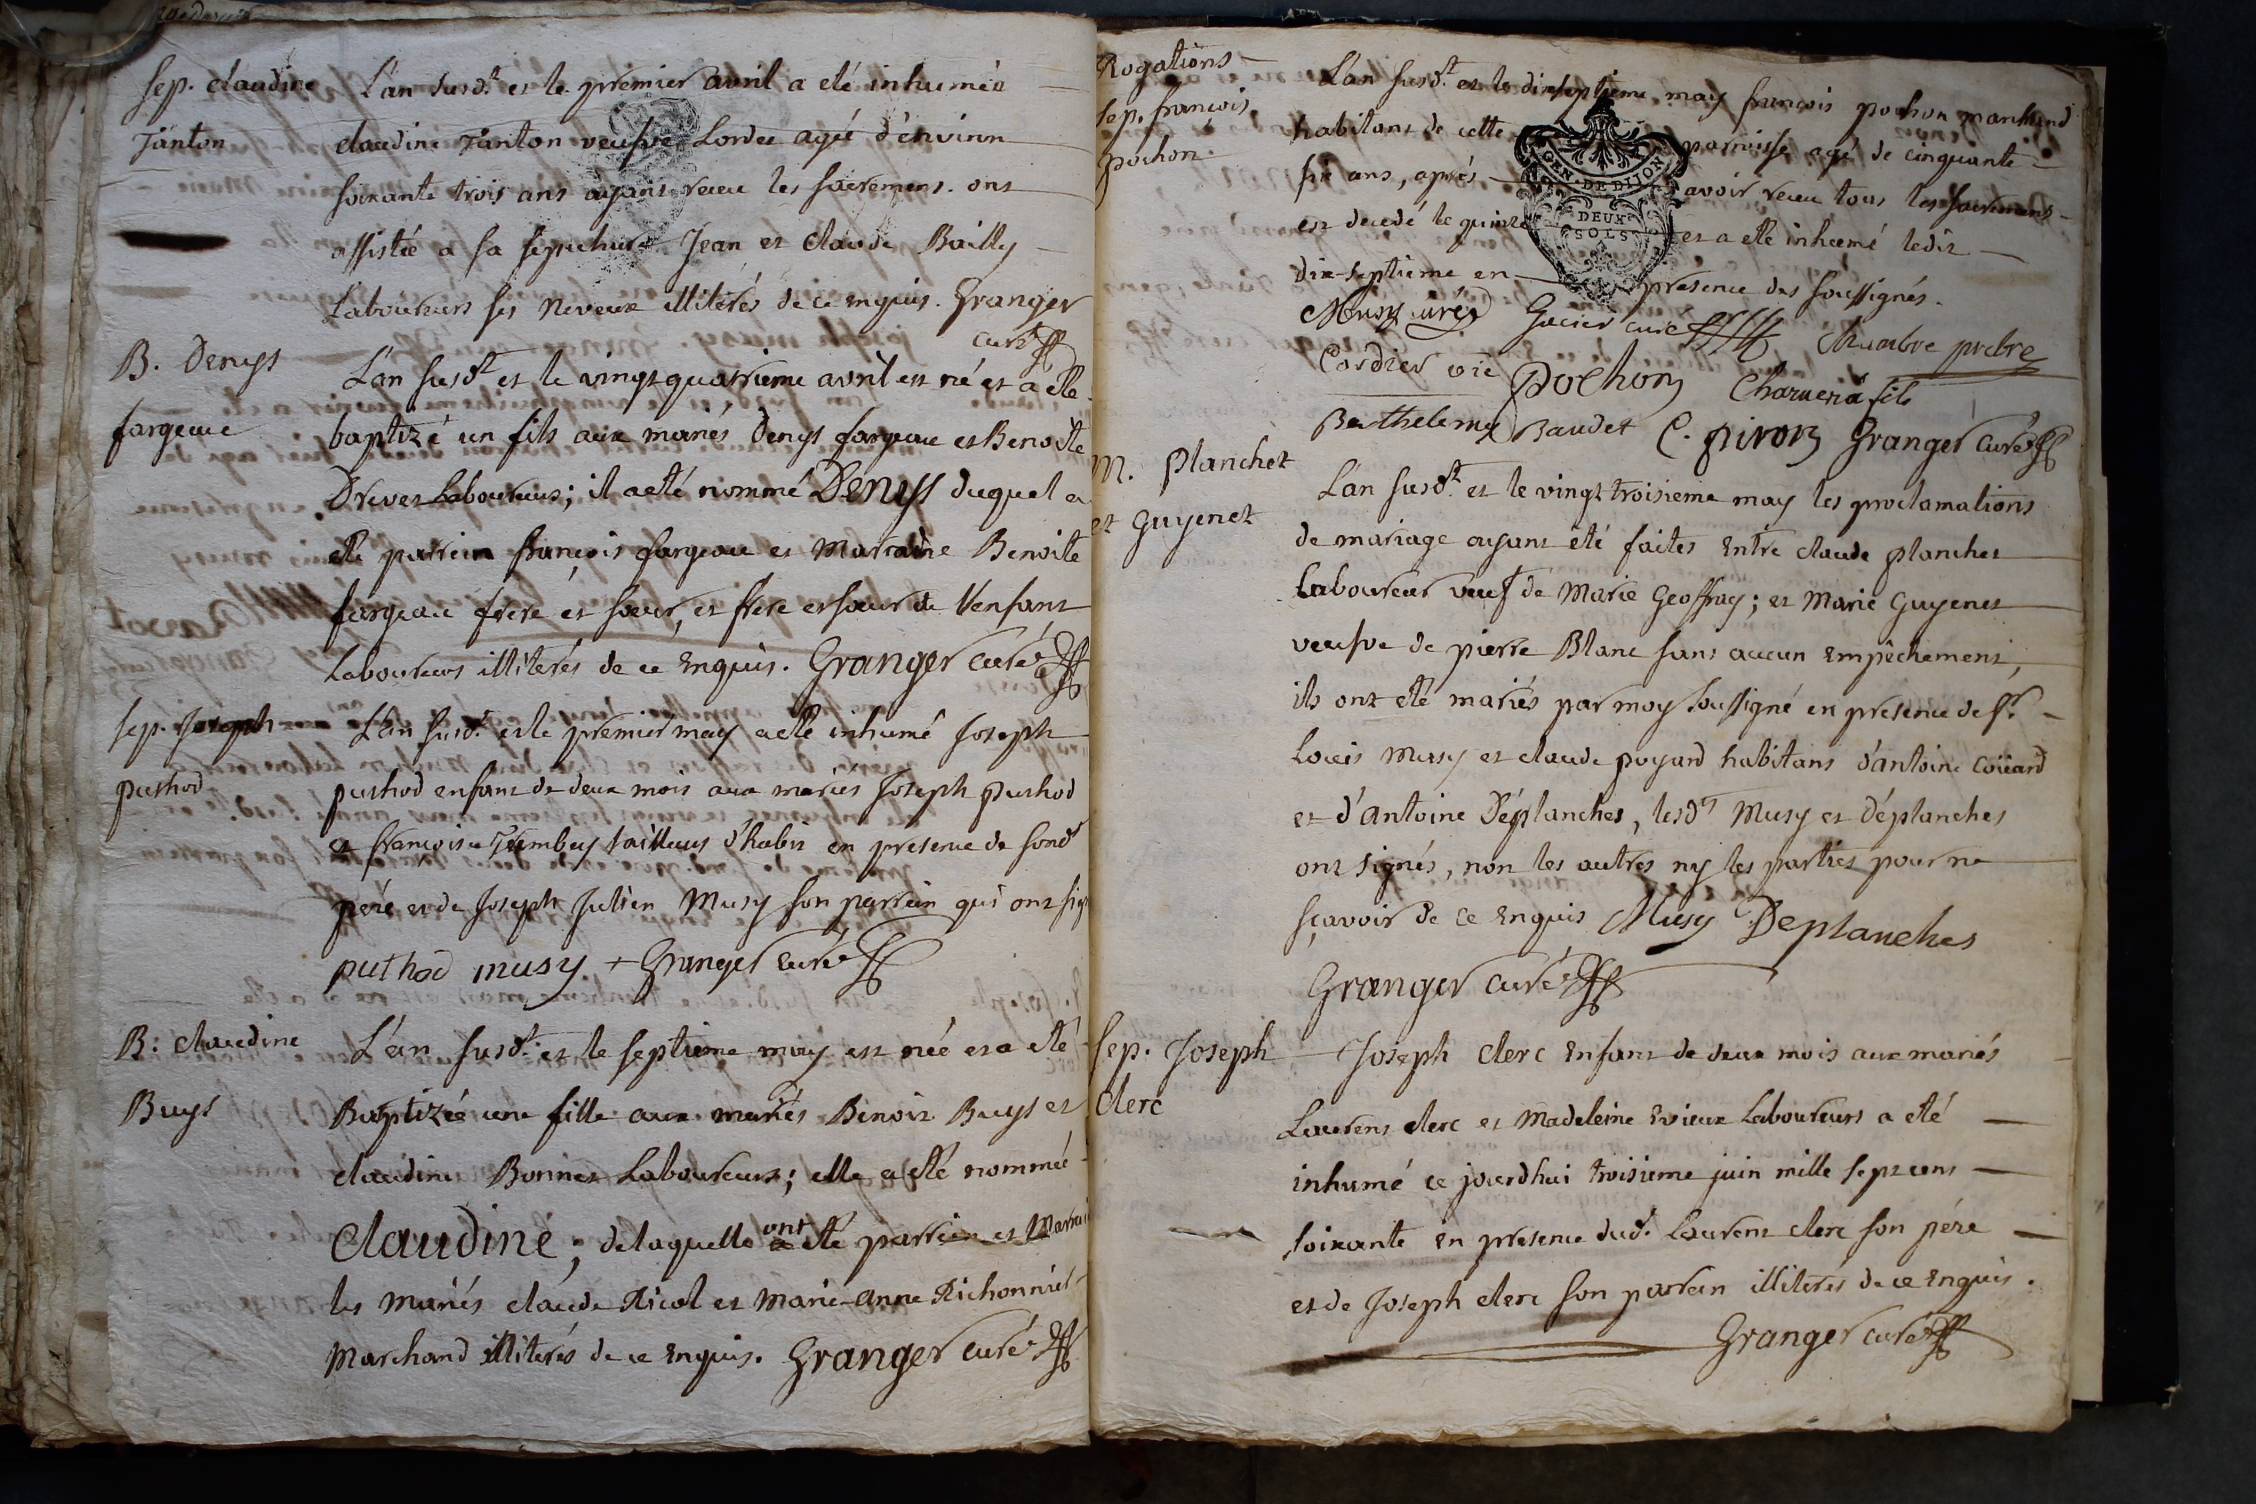 Sep. claudine
Tânton
L'an susd.t et le premier avril a eté inhumée
claudine Tânton veufve Lordee agée d'environ
soixante trois ans ayant receu les sacremens. ont
assistée a sa sepulture Jean et Claude Bailly
Laboureurs ses Neveux illiterés de ce enquis. Granger
curé
B. Denys
fargeaue
L'an susd.t et le vingt quatrieme avril est né et a eté
baptizé un fils aux mariés Denys fargeaue et Benoîte
Drevet Laboureurs; il a eté nommé Denys duquel a
eté parrein françois fargeaue et Marraine Benoite
fargeaue frere et soeur, et frere et soeur de l'enfant
Laboureurs illiterés de ce enquis. Granger curé
Sep. Joseph
puthod
L'an susd.t et le premier may a eté inhumé Joseph
puthod enfant de deux mois aux mariés Joseph puthod
et francoise tailleurs d'habit en presence de sond.t
pére et de Joseph Julien Musy son parrein qui ont sig
puthod musy + Granger curé
B: claudine
Buys
L'an susd.t et le septieme may est née et a eté
Baptizée une fille aux mariés Benoit Buys et
claudine Bonnet Laboureurs; elle a eté nommée
Claudine; de laquelle ont eté parrein et Marrai
les mariés claude Nicol et Marie-anne Richonnier
Marchand illiterés de ce enquis. Granger curé
Rogations
Sep. francois
pochon
L'an susd.t et le dixseptieme may francois pochon marchand
habitant de cette parroisse agé de cinquante
six ans, aprés avoir receu tous les sacremens
est decedé le quinze et a eté inhumé ledit
dix-septieme en presence des soussignés.
GEN. DE DIJON
DEUX
SOLS
Musy curé Gacier curé Chambre prebre
Cordier vic pochon fils
Berthelemy Baudet C. pivon Granger curé
M. Planchet
et Guyenet
L'an susd.t et le vingt troisieme may les proclamations
de mariage ayant eté faites entre claude planchet
Laboureur veuf de Marie Geoffray; et Marie Guyenet
veufve de pierre Blanc sans aucun empêchement,
ils ont eté mariés par moy soussigné en presence de Sr.
Louis Musy et claude poyard habitans d'antoine coüard
et d'Antoine Déplanches, lesd.ts Musy et Déplanches
ont signés, non les autres ny les parties pour ne
sçavoir de ce enquis Musy Deplanches
Granger curé
Sep. Joseph
Clerc
Joseph clerc enfant de deux mois aux mariés
Laurent clerc et Madeleine Evieux Laboureurs a eté
inhumé ce jourdhui troisieme juin mille sept cent
soixante en presence dud.t Laurent clerc son pére
et de Joseph clerc son parrein illiterés de ce enquis.
Granger curé